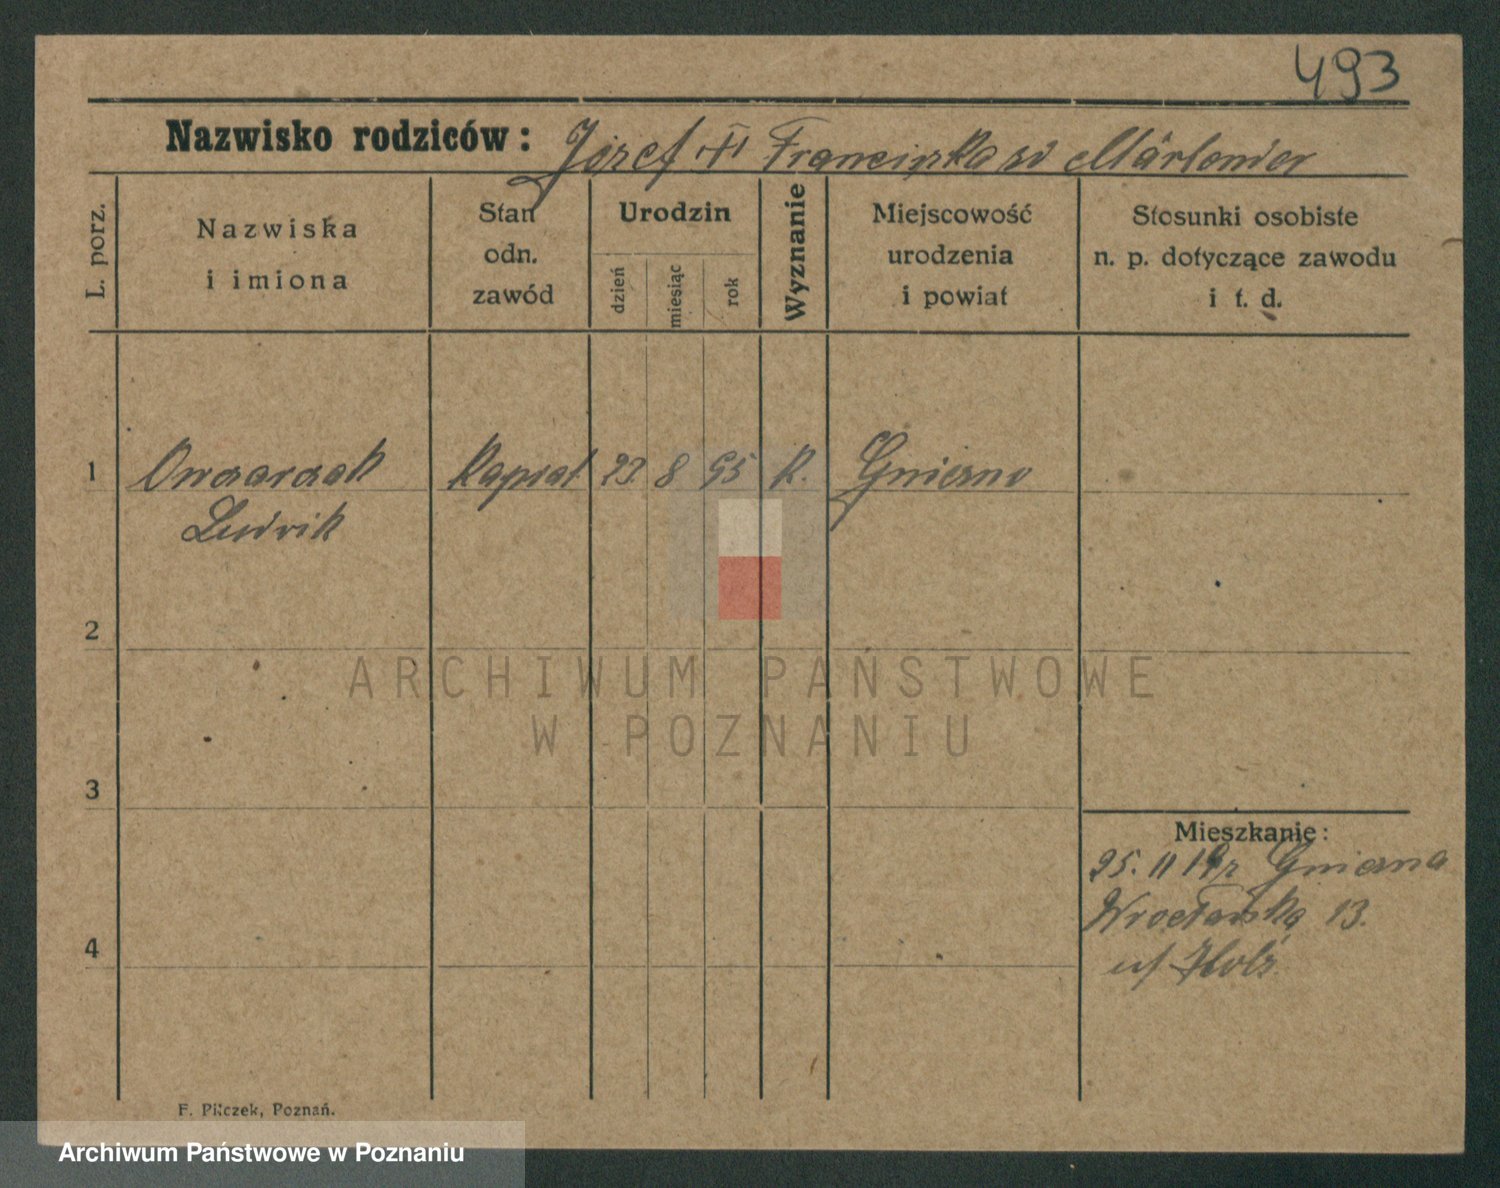 493
Nazwisko rodziców: Józef i Franciszka
L. porz.
Nazwiska i imiona
Stan odn. zawód
Urodzin
dzień
miesiąc
rok
Wyznanie
Miejscowość urodzenia i powiat
Stosunki osobiste n. p. dotyczące zawodu i t. d.
1 23. 8 95 K. Gniezno
Ludwik
2
3
4
Mieszkanie:
25. 11 19r Gniezna
Wrocławska 13.
F. Pilczek, Poznań.
ARCHIWUM PAŃSTWOWE
W POZNANIU
Archiwum Państwowe w Poznaniu